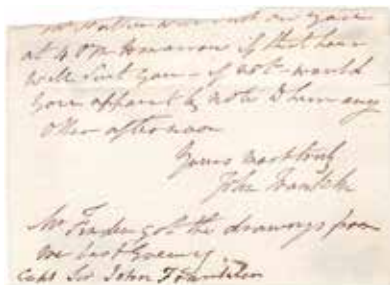 at 4 PM tomorrow if that hour
will suit you - if not - would
you appoint by note to him any
other afternoon
Yours most truly
John Franklin
Mr Finden got the drawings from
me last Evening
Capt Sir John Franklin